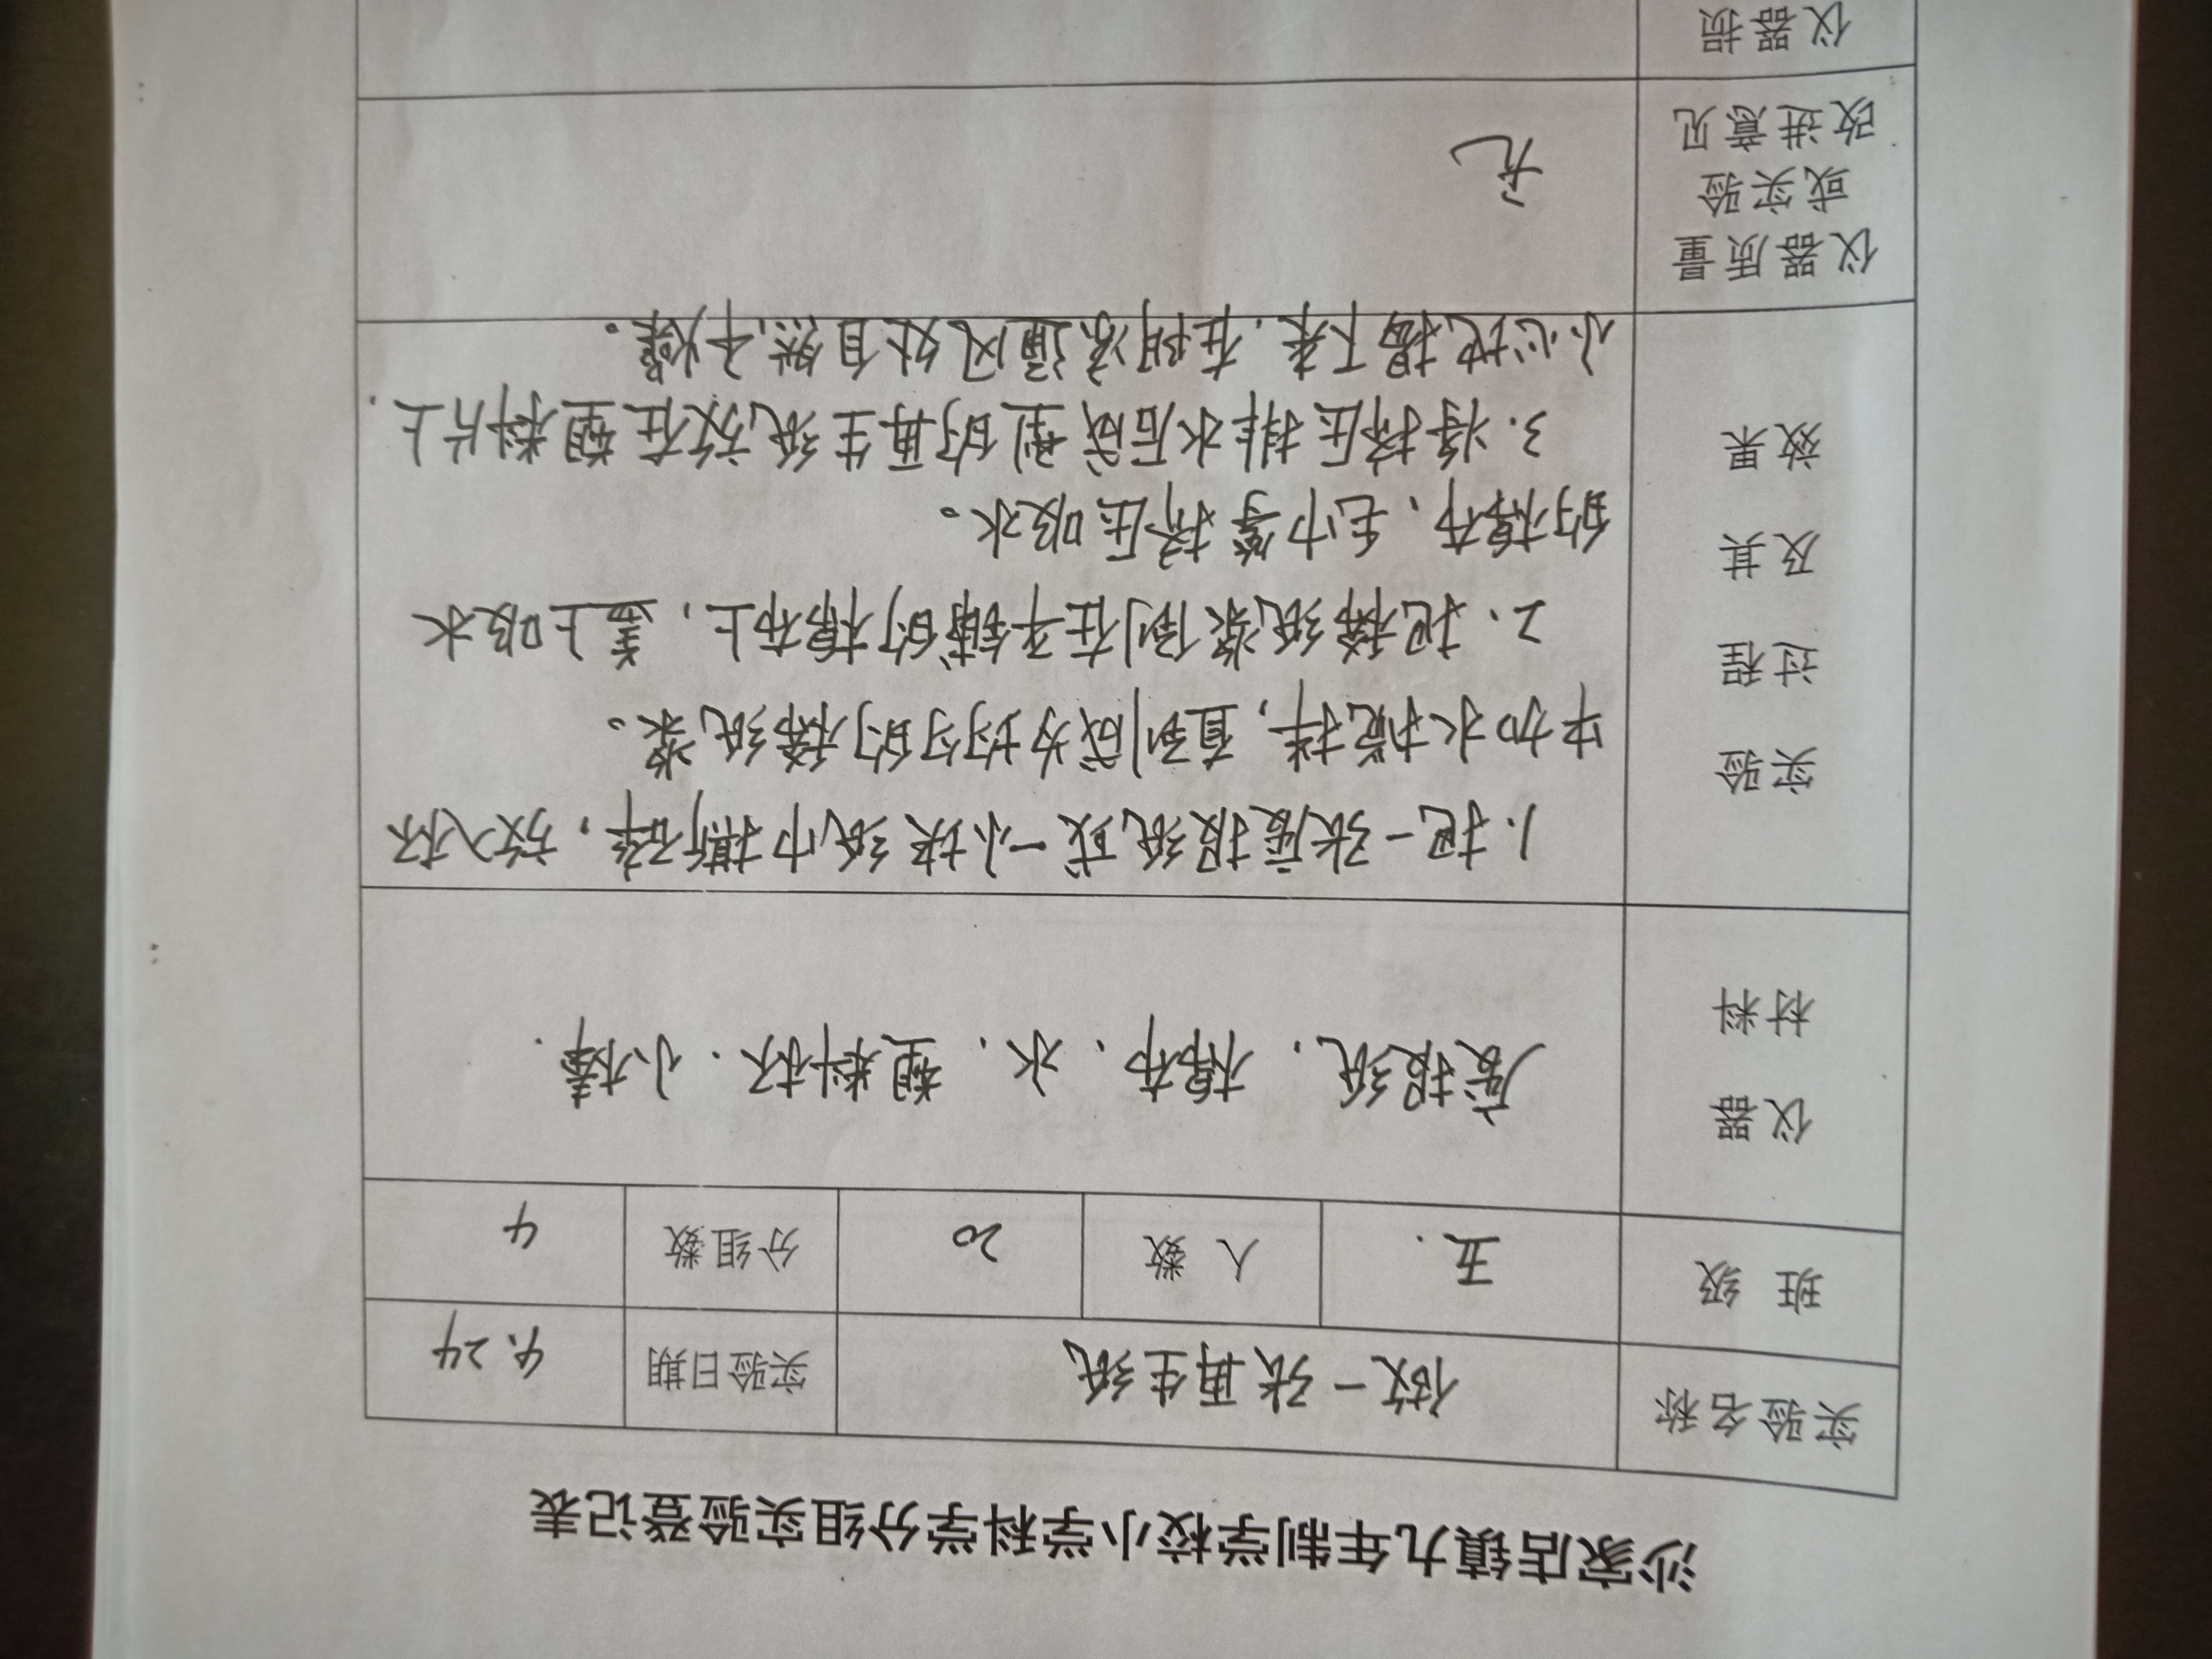 沙家店镇九年制学校小学科学分组实验登记表
实验名称 做一张再生纸 实验日期 4.24
班 级 五. 人 数 20 分组数 4
仪器
材料
废报纸、棉布、水、塑料杯、小棒.
实验
过程
及其
效果
1.把一张废报纸或一小块纸巾撕碎，放入杯
中加水搅拌，直到成为均匀的稀纸浆。
2、把稀纸浆倒在平铺的棉布上，盖上吸水
的棉布、毛巾等挤压吸水。
3.将挤压排水后成型的再生纸放在塑料片上.
小心地揭下来.在阴凉通风处自然干燥。
仪器质量
或实验
改进意见
无
仪器损